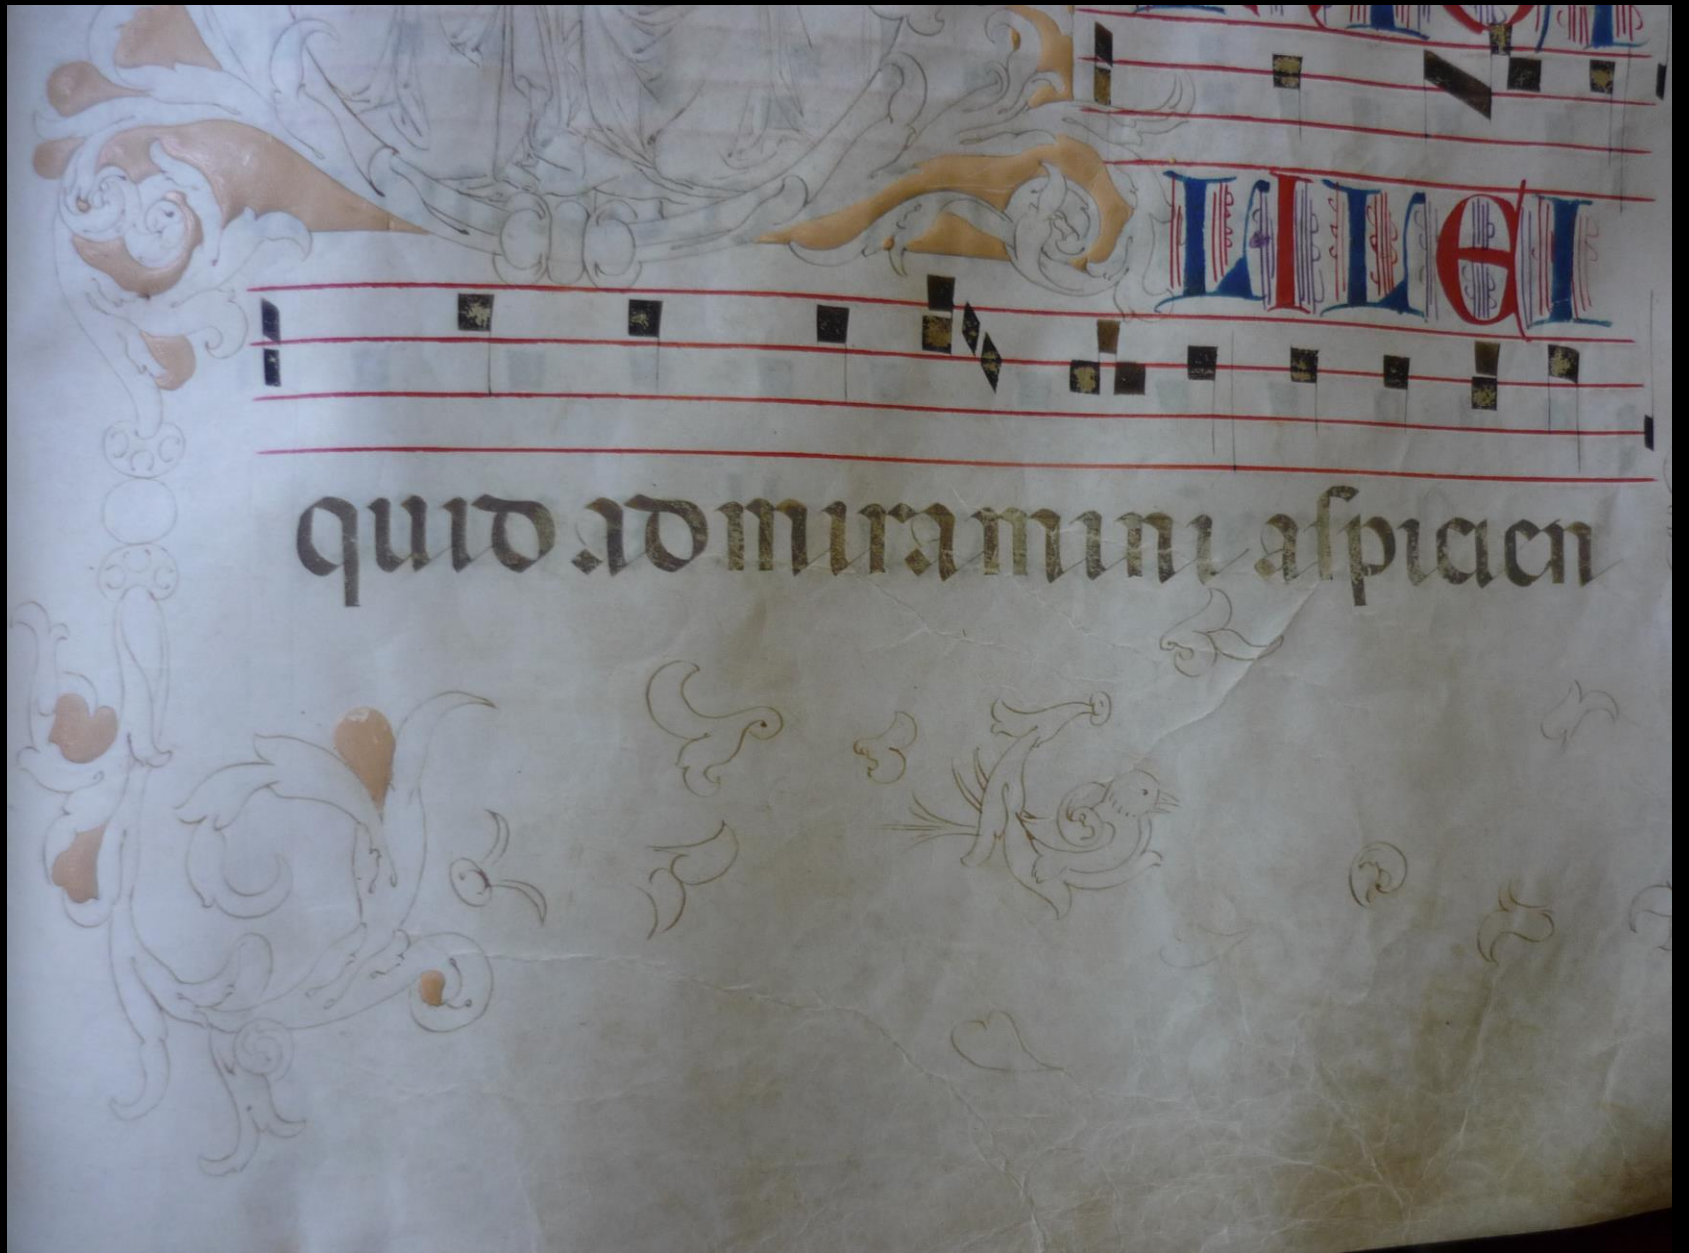 LILEI
quid admiramini aspicien